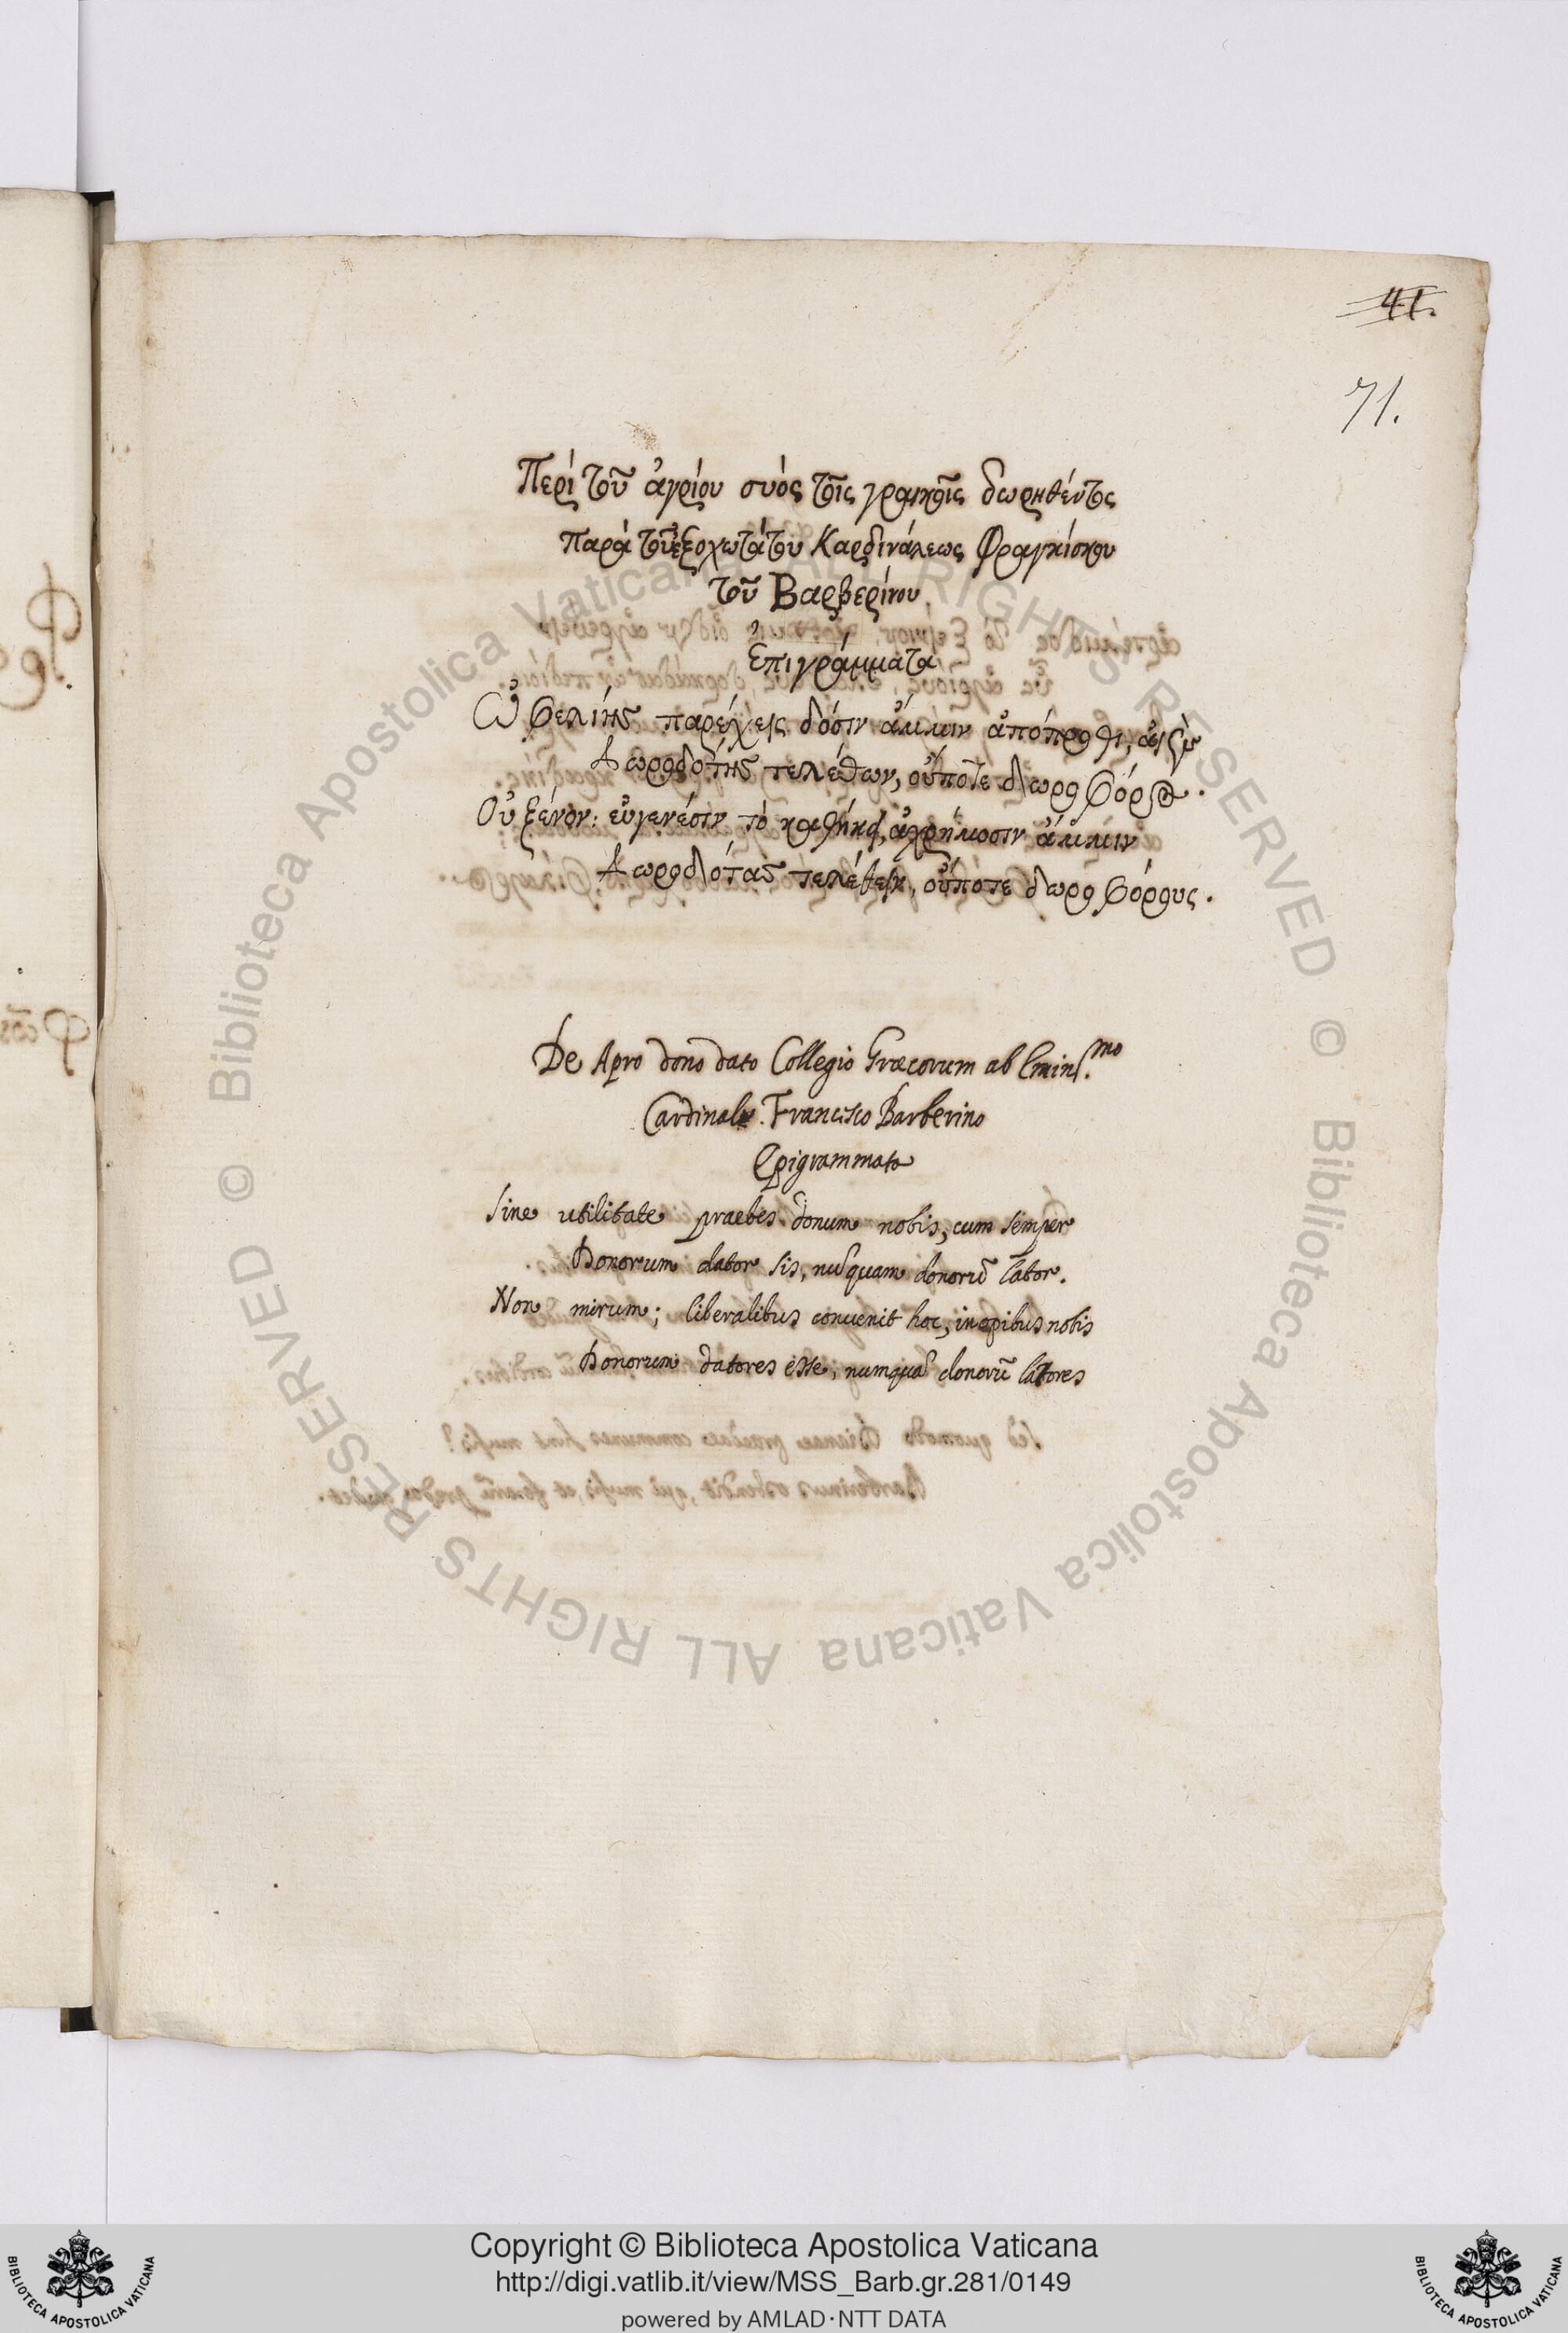 41.
71.
Περὶ τοῦ ἀγρίου συὸς τοῖς γραικοῖς δωρηθέντος
παρὰ τοῦ ἐξοχωτάτου Καρδινάλεως Φραγκίσκου
τοῦ Βαρβερίνου
Ἐπιγράμματα
παρέχεις δόσιν ἄμμιν ἀπόπροθι,
Δωροδότης τελέθων, οὔποτε δωροφόρος.
Οὐ ξένον: εὐγενέσιν τὸ ἀχρήμοσιν ἄμμιν
Δωροδότας τελέθειν, οὔποτε δωροφόρους.
De Apro dono dato Collegio Græcorum ab Emin.mo
Cardinale Francisco Barberino
Epigrammata
Sine utilitate praebes donum nobis, cum semper
Donorum dator sis, nusquam donorū lator.
Non mirum; liberalibus convenit hoc, inopibus nobis
Donorum datores esse; numquā donorū latores
Copyright © Biblioteca Apostolica Vaticana
http://digi.vatlib.it/view/MSS_Barb.gr.281/0149
powered by AMLAD·NTT DATA
BIBLIOTECA APOSTOLICA VATICANA
BIBLIOTECA APOSTOLICA VATICANA
© Biblioteca Apostolica Vaticana ALL RIGHTS RESERVED © Biblioteca Apostolica Vaticana ALL RIGHTS RESERVED